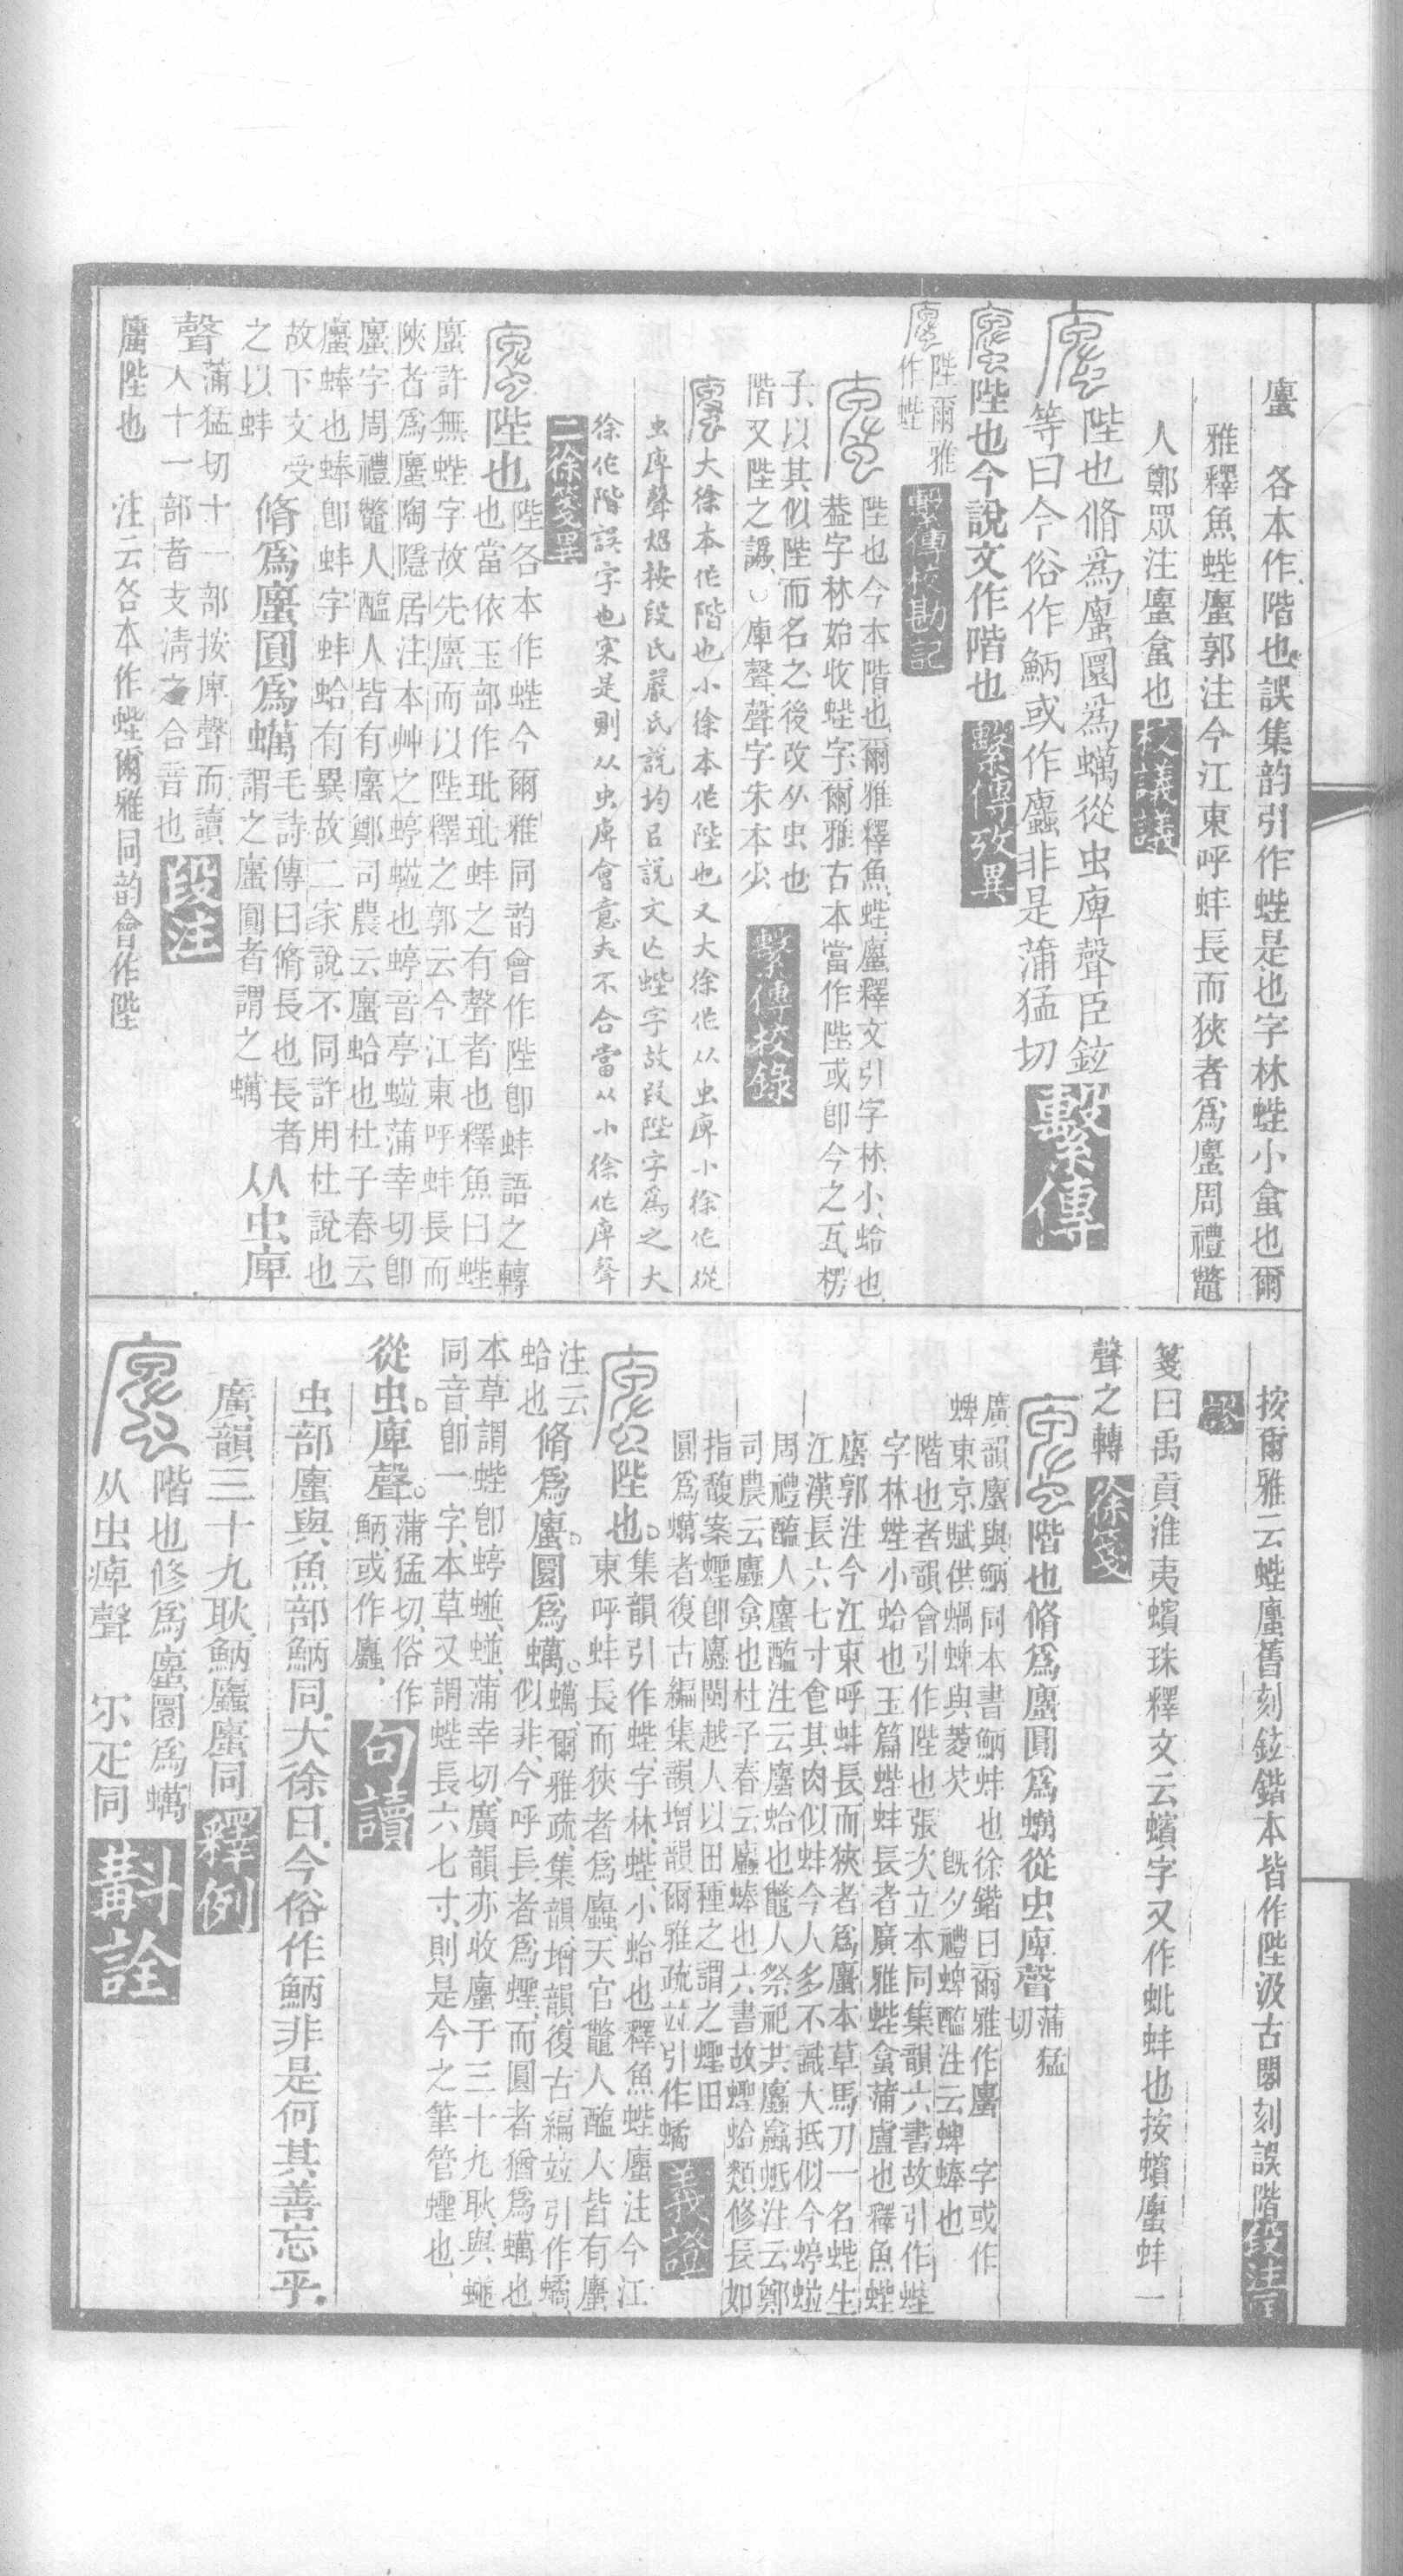 蠯　各本作階也誤集韵引作蜌是也字林蜌小蛤也爾
雅釋魚蜌蠯郭注今江東呼蚌長而狹者爲蠯周禮鼈
人鄭眾注蠯蛤也 校議議
陛也脩爲蠯圜爲蠇從虫庳聲臣鉉
等曰今俗作魶或作䗯非是蒲猛切 繫傳
陛也今說文作階也 繫傳攷異
陛爾雅
作蜌 繫傳校勘記
陛也今本階也爾雅釋魚蜌蠯釋文引字林小蛤也
葢字林始收蜌字爾雅古本當作陛或卽今之瓦楞
子以其似陛而名之後改从虫也
階又陛之譌○庳聲聲字朱本少 繫傳校錄
大徐本作階也小徐本作陛也又大徐作从虫庳小徐作從
虫庳聲炤按段氏嚴氏說均㠯說文亡蜌字故段陛字爲之大
徐作階誤字也案是則从虫庳會意大不合當从小徐作庳聲
二徐箋異
陛也
陛各本作蜌今爾雅同韵會作陛卽蚌語之轉
也當依玉部作玭玭蚌之有聲者也釋魚曰蜌
蠯許無蜌字故先蠯而以陛釋之郭云今江東呼蚌長而
陜者爲蠯陶隱居注本艸之蝏蠯也蝏音亭蠯蒲幸切卽
蠯字周禮鼈人醢人皆有蠯鄭司農云蠯蛤也杜子春云
蠯蜯也蜯卽蚌字蚌蛤有異故二家說不同許用杜說也
故下文受
之以蚌
脩爲蠯圓爲蠇
毛詩傳曰脩長也長者
謂之蠯圓者謂之蠇
从虫庳
聲
蒲猛切十一部按庳聲而讀
入十一部者支淸之合音也 段注
蠯陛也　注云各本作蜌爾雅同韵會作陛
按爾雅云蜌蠯舊刻鉉鍇本皆作陛汲古閣刻誤階 段注
箋曰禹貢淮夷蠙珠釋文云蠙字又作蚍蚌也按蠙蠯蚌一
聲之轉 徐箋
階也脩爲蠯圓爲蠇從虫庳聲
蒲猛
切
廣韻蠯與魶同本書魶蚌也徐鍇曰爾雅作蠯　字或作
蜱東京賦供蝸蜱與菱芡　旣夕禮蜱醢注云蜱蜯也
階也者韻會引作陛也張次立本同集韻六書故引作蜌
字林蜌小蛤也玉篇蜌蚌長者廣雅蜌蛤蒲盧也釋魚蜌
蠯郭注今江東呼蚌長而狹者爲蠯本草馬刀一名蜌生
江漢長六七寸食其肉似蚌今人多不識大抵似今蝏蠯
周禮醢人蠯醢注云蠯蛤也鼈人祭祀共蠯蠃蚳注云鄭
司農云蠯蛤也杜子春云蠯蜯也六書故蟶蛤類修長如
指馥案蟶卽蠯閩越人以田種之謂之蟶田
圓爲蠇者復古編集韻增韻爾雅疏竝引作蠣 義證
陛也。
集韻引作蜌字林蜌小蛤也釋魚蜌蠯注今江
東呼蚌長而狹者爲蠯天官鼈人醢人皆有蠯
注云
蛤也
脩爲蠯。圜爲蠇。
蠇爾雅疏集韻增韻復古編竝引作蠣
似非今呼長者爲蟶而圓者猶爲蠣也
本草謂蜌卽蝏䗒䗒蒲幸切廣韻亦收蠯于三十九耿與䗒
同音卽一字本草又謂蜌長六七寸則是今之筆管蟶也
從虫。庳聲。
蒲猛切俗作
魶或作䗯 句讀
虫部蠯與魚部魶同大徐曰今俗作魶非是何其善忘乎
廣韻三十九耿魶䗯蠯同 釋例
階也修爲蠯圜爲蠇
从虫庳聲　尓疋同 斠詮